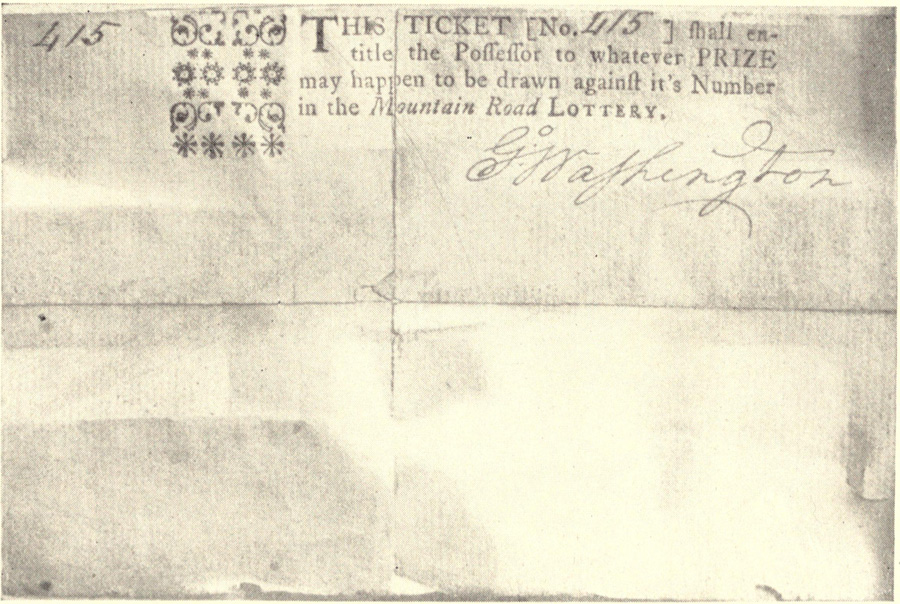 415
THIS TICKET [No. 415 ] ſhall en-
title the Poſſeſſor to whatever PRIZE
may happen to be drawn againſt it's Number
in the Mountain Road LOTTERY.
Go Waſhington